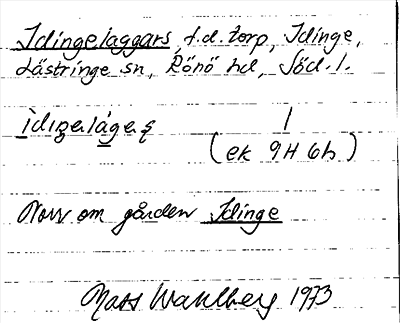 Idingelaggars, f.d. torp, Idinge,
Lästringe sn, Rönö hd, Söd. l.
ìdiŋelágeṣ
1
(ek 9H 6h)
Norr om gården Idinge
Mats Wahlberg 1973